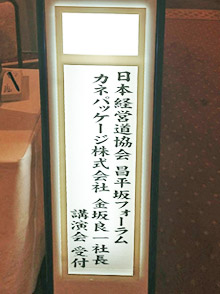 日本経営道協会 昌平坂フォーラム
カネパッケージ株式会社 金坂良一社長
講演会 受付